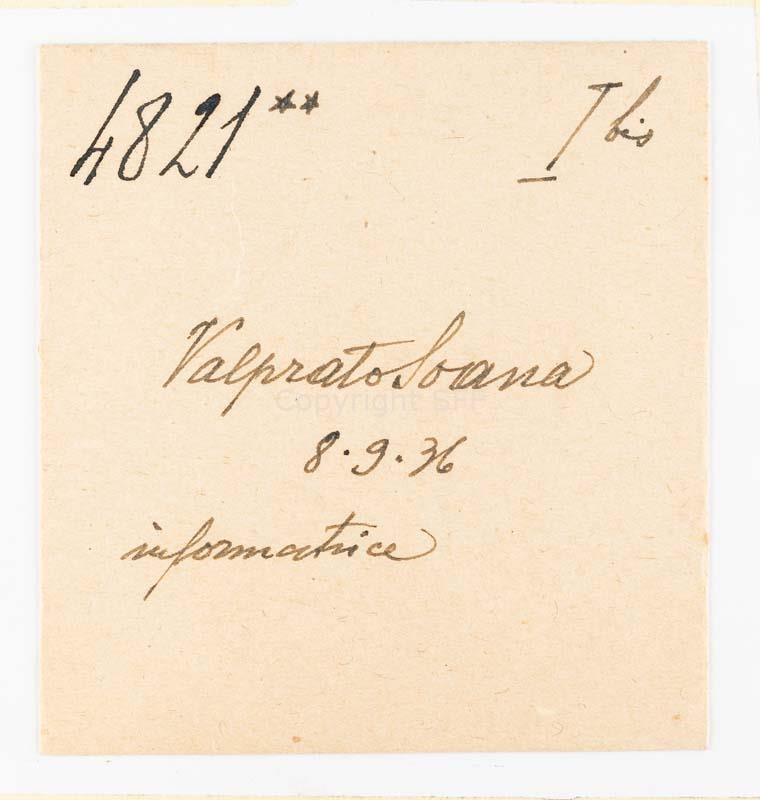 4821** I bis
Valprato Soana
Copyright SFF
8.9.36
informatrice